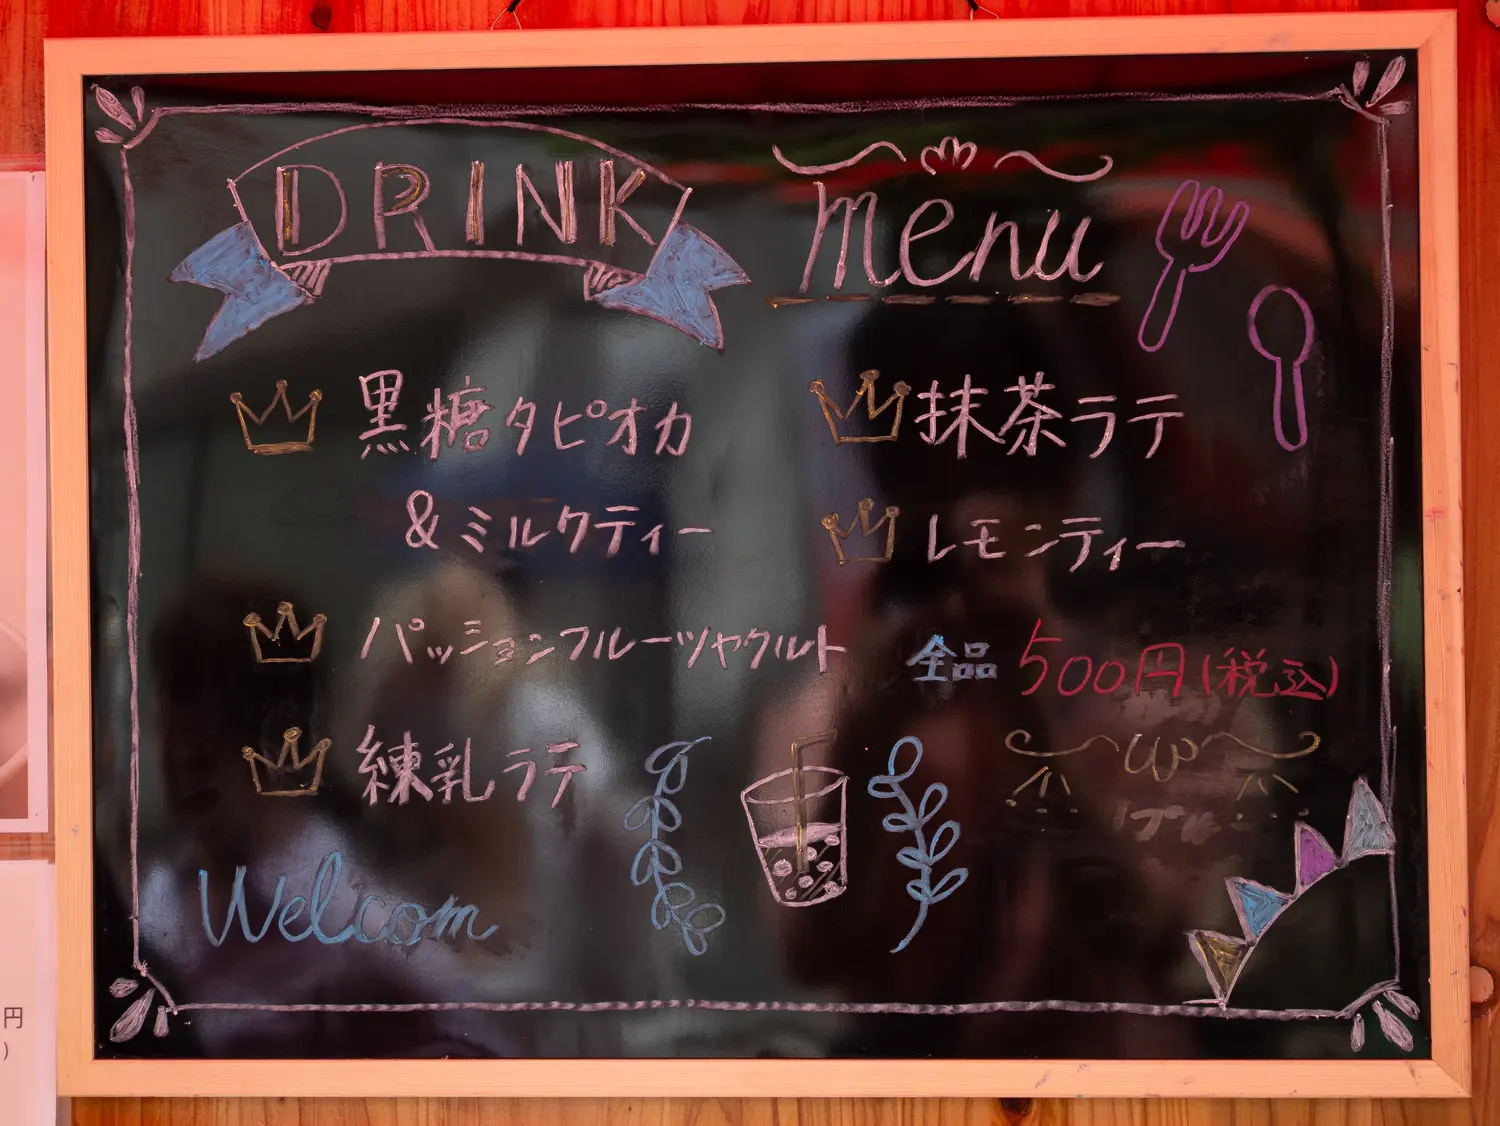 DRINK menu
黒糖タピオカ
&ミルクティー
パッションフルーツヤクルト
練乳ラテ
抹茶ラテ
レモンティー
全品 500円(税込)
Welcom
円
)